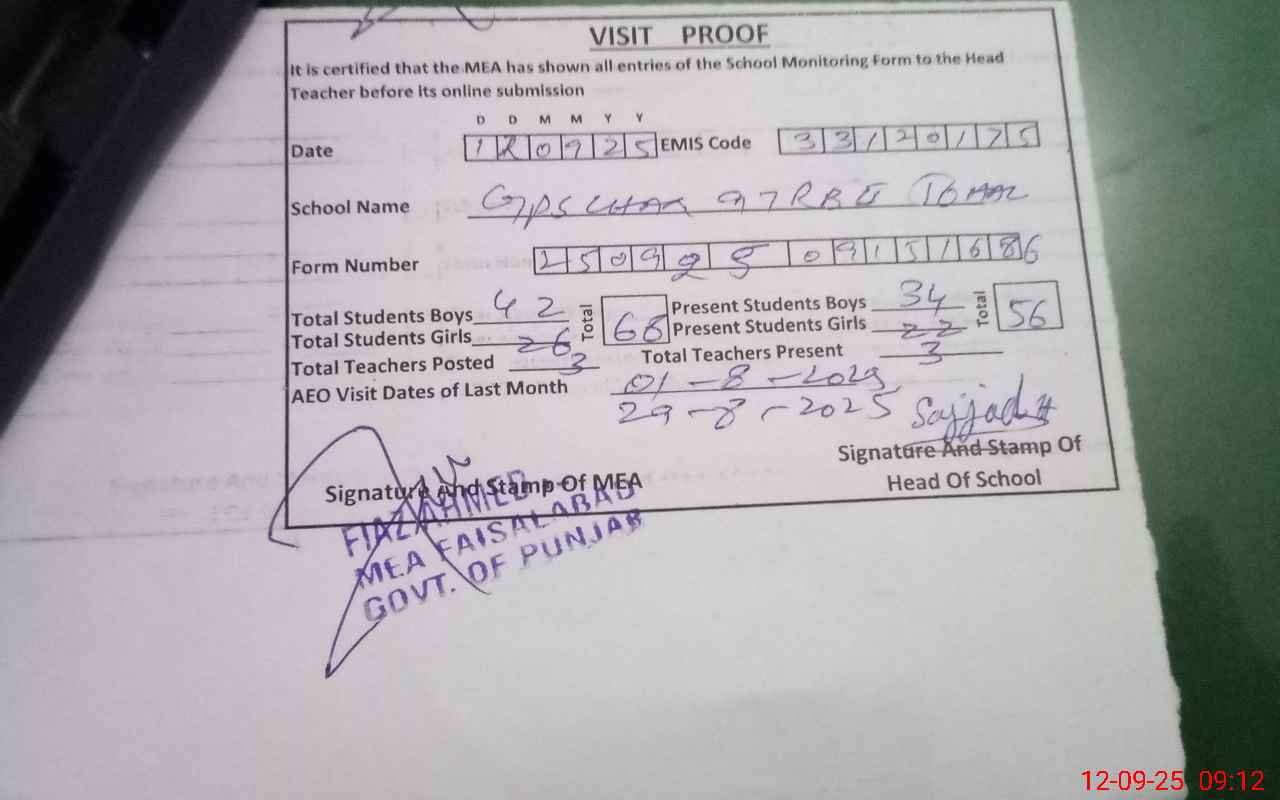 VISIT PROOF
It is certified that the MEA has shown all entries of the School Monitoring Form to the Head
Teacher before its online submission
D D M M Y Y
Date 120925 EMIS Code 33120175
School Name GPS CHAK 97 RB
Form Number 2509 25 09151686
Total Students Boys 42 Total 68 Present Students Boys 34 Total 56
Total Students Girls 26 Present Students Girls 22
Total Teachers Posted 3 Total Teachers Present 3
AEO Visit Dates of Last Month 01-8-2025
29-8-2025
Sajjad
Signature And Stamp Of MEA
Signature And Stamp Of
Head Of School
FIAZ AHMED
MEA FAISALABAD
GOVT. OF PUNJAB
12-09-25 09:12